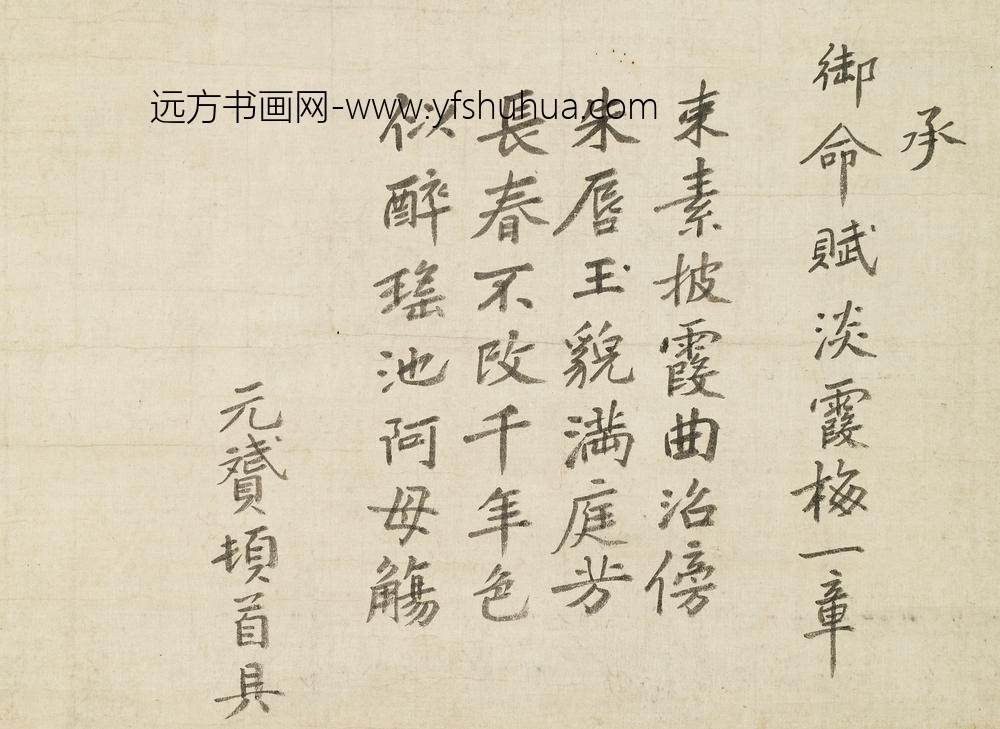 远方书画网-www.yfshuhua.com
承
御命賦淡霞梅一章
束素披霞曲沼傍
朱唇玉貌満庭芳
長春不改千年色
似醉瑤池阿母觴
元贇頓首具